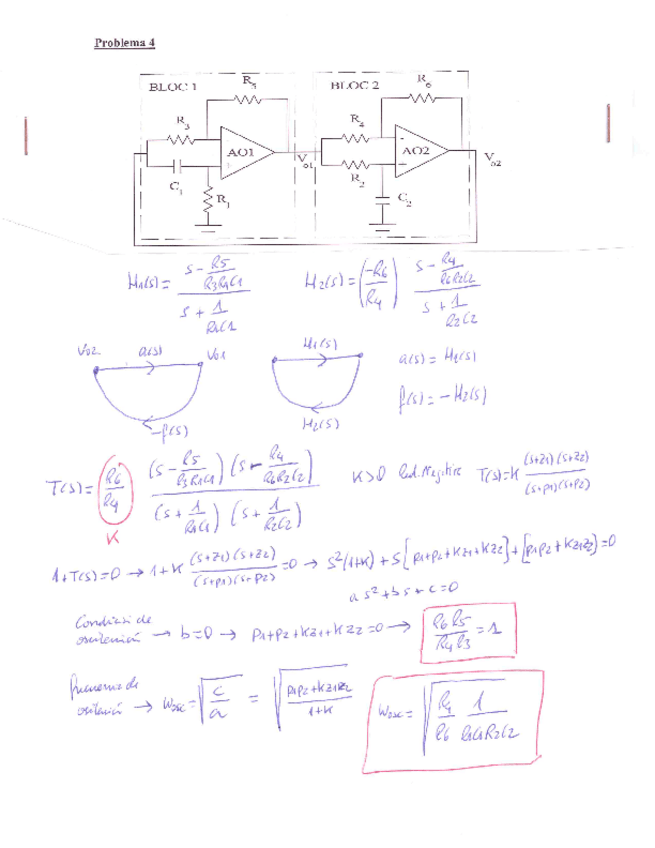 Problema 4
BLOC 1 R5 BLOC 2 R6
R3 R4
AO1 AO2
Vo1 Vo2
C1 R1 R2 C2
H1(s) = (s - R5/(R3R1C1)) / (s + 1/(R1C1)) H2(s) = (-R6/R4) (s - R4/(R6R2C2)) / (s + 1/(R2C2))
Vo2 a(s) Vo1 H1(s) a(s) = H1(s)
f(s) = -H2(s)
-f(s) H2(s)
T(s) = (R6/R4) (s - R5/(R3R1C1)) (s - R4/(R6R2C2)) / (s + 1/(R1C1)) (s + 1/(R2C2)) K>0 Red. Negitive T(s)=K (s+z1)(s+z2) / (s+p1)(s+p2)
K
1+T(s)=0 → 1+K (s+z1)(s+z2) / (s+p1)(s+p2) =0 → s²(1+K) + s[p1+p2+Kz1+Kz2] + [p1p2+Kz1z2]=0
a s² + b s + c = 0
Condició de
oscil·lació → b=0 → p1+p2+Kz1+Kz2=0 → R6R5/R4R3 = 1
frequencia de
oscil·lació → Wosc = √(c/a) = √((p1p2+Kz1z2)/(1+K)) Wosc = √(R4/R6 1/(R1C1R2C2))